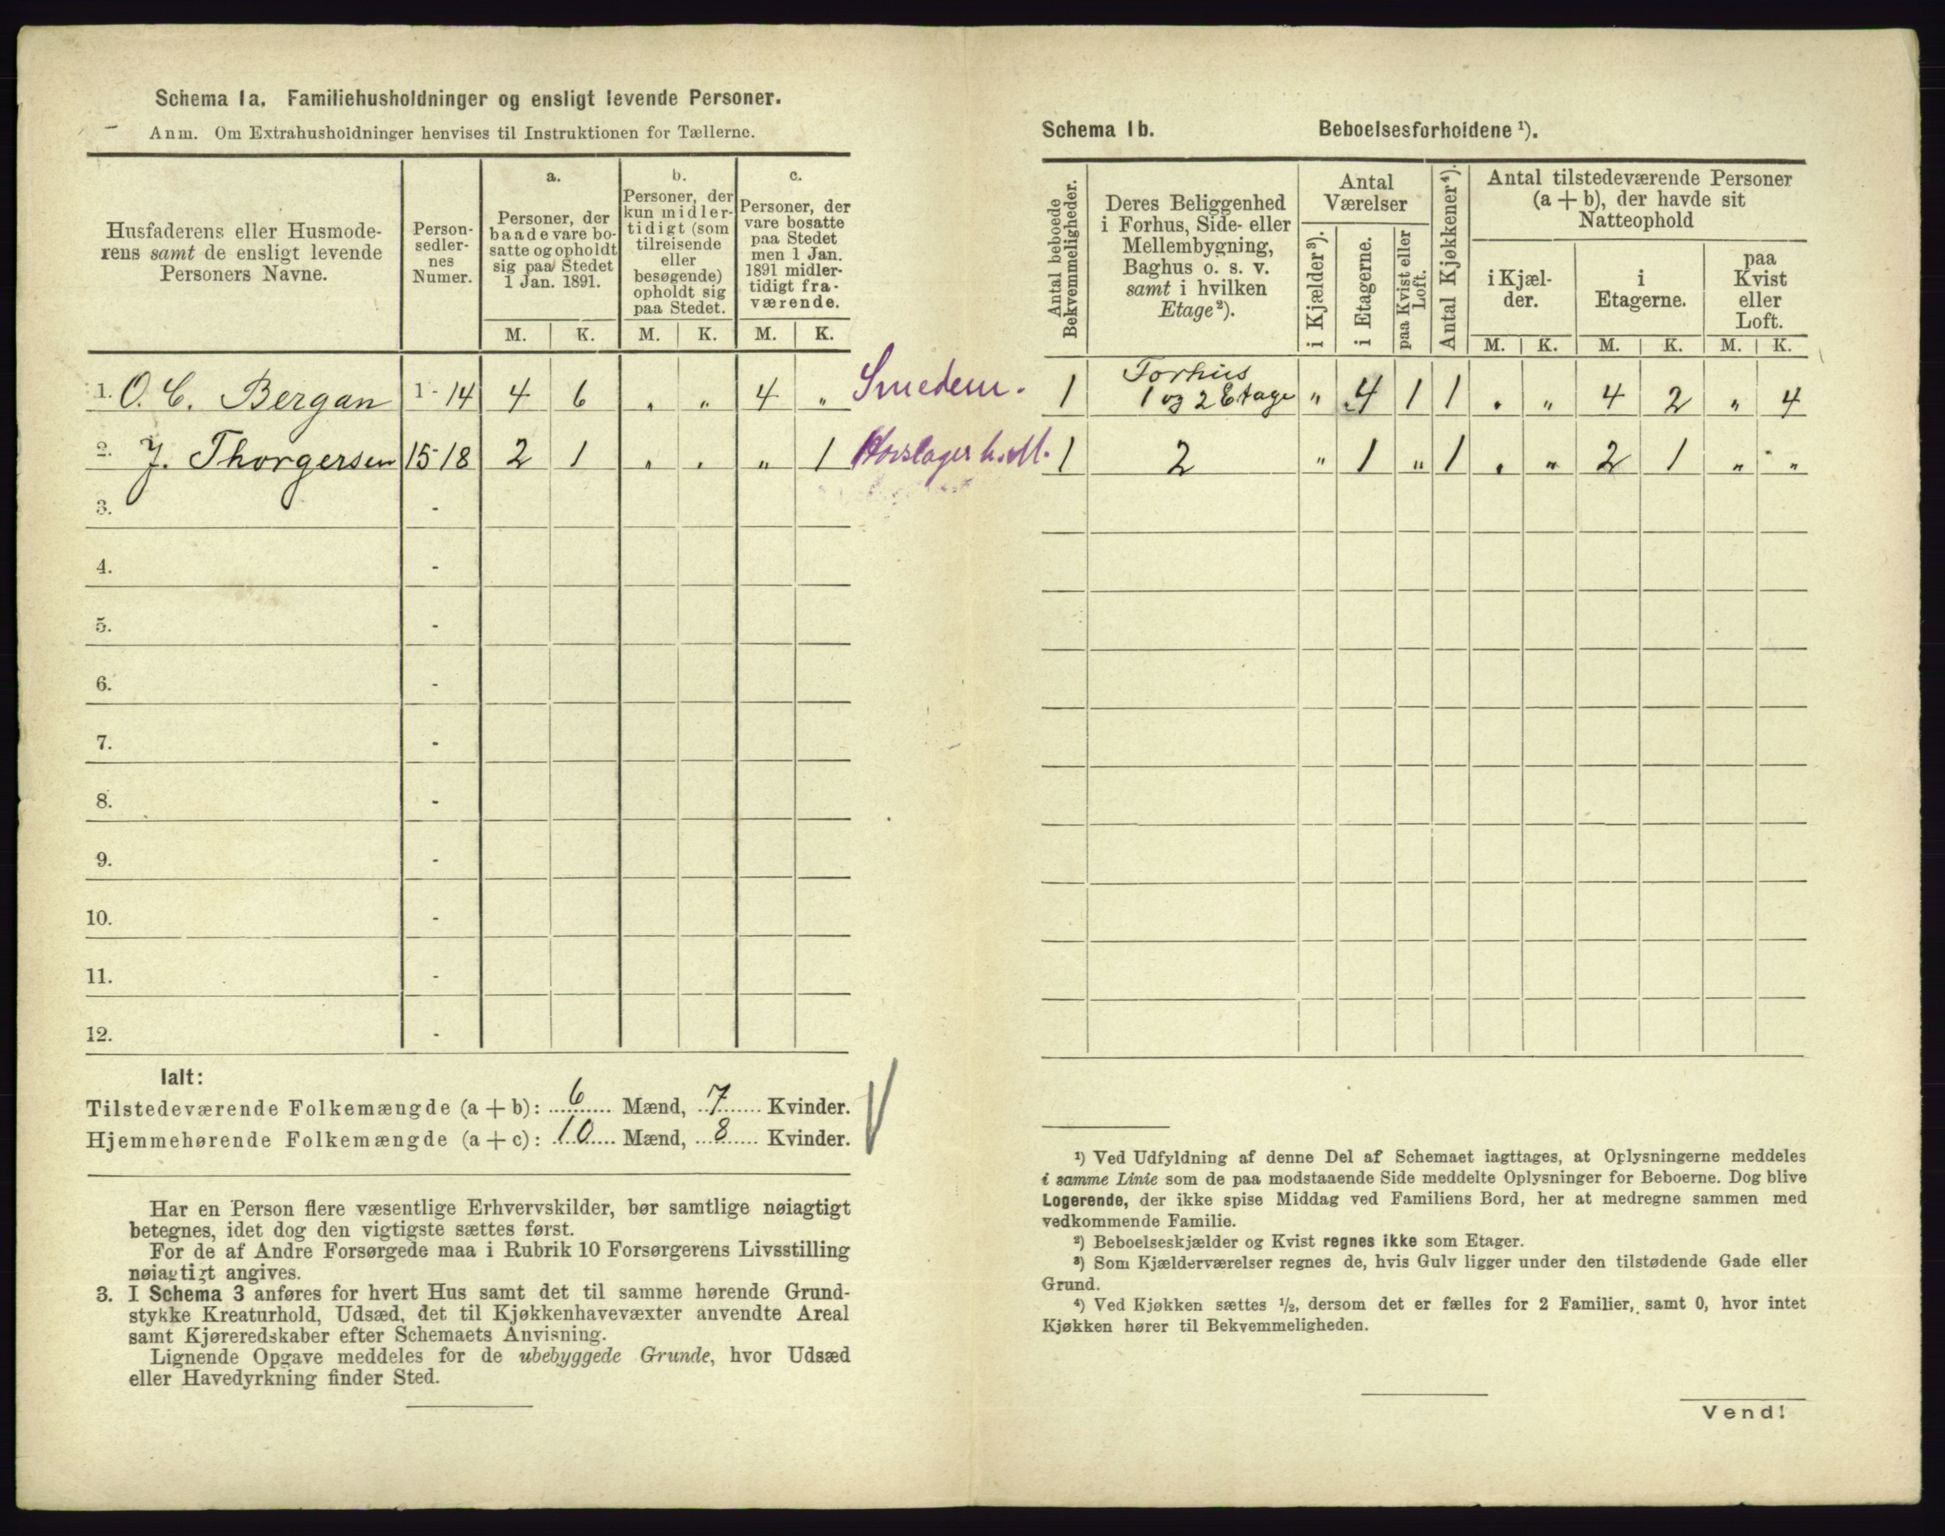 Schema 1a. Familiehusholdninger og ensligt levende Personer.
Anm. Om Extrahusholdninger henvises til Instruktionen for Tællerne.
Husfaderens eller Husmode-
rens samt de ensligt levende
Personers Navne.
Person-
sedler-
nes
Numer.
a.
Personer, der
baade vare bo-
satte og opholdt
sig paa Stedet
1 Jan. 1891.
b.
Personer, der
kun midler-
tidigt (som
tilreisende
eller
besøgende)
opholdt sig
paa Stedet.
c.
Personer, der
vare bosatte
paa Stedet
men 1 Jan.
1891 midler-
tidigt fra-
værende.
M. K. M. K. M. K.
1. O. C. Bergan 1 - 14 4 6 „ „ 4 „ Smedem.
2. J. Thorgersen 15-18 2 1 „ „ „ 1
3. -
4. -
5. -
6. -
7. -
8. -
9. -
10. -
11. -
12. -
Ialt:
Tilstedeværende Folkemængde (a + b): 6 Mænd, 7 Kvinder.
Hjemmehørende Folkemængde (a + c): 10 Mænd, 8 Kvinder.
Har en Person flere væsentlige Erhvervskilder, bør samtlige nøiagtigt
betegnes, idet dog den vigtigste sættes først.
For de af Andre Forsørgede maa i Rubrik 10 Forsørgerens Livsstilling
nøiagtigt angives.
3. I Schema 3 anføres for hvert Hus samt det til samme hørende Grund-
stykke Kreaturhold, Udsæd, det til Kjøkkenhavevæxter anvendte Areal
samt Kjøreredskaber efter Schemaets Anvisning.
Lignende Opgave meddeles for de ubebyggede Grunde, hvor Udsæd
eller Havedyrkning finder Sted.
Schema 1b. Beboelsesforholdene ¹).
Antal beboede
Bekvemmeligheder.
Deres Beliggenhed
i Forhus, Side- eller
Mellembygning,
Baghus o. s. v.
samt i hvilken
Etage ²).
Antal
Værelser
i Kjælder ³).
i Etagerne.
paa Kvist eller
Loft.
Antal Kjøkkener ⁴).
Antal tilstedeværende Personer
(a + b), der havde sit
Natteophold
i Kjæl-
der.
i
Etagerne.
paa
Kvist
eller
Loft.
M. K. M. K. M. K.
1 Forhus
1 og 2 Etage „ 4 1 1 „ „ 4 2 „ 4
1 2 „ 1 „ 1 „ „ 2 1 „ „
¹) Ved Udfyldning af denne Del af Schemaet iagttages, at Oplysningerne meddeles
i samme Linie som de paa modstaaende Side meddelte Oplysninger for Beboerne. Dog blive
Logerende, der ikke spise Middag ved Familiens Bord, her at medregne sammen med
vedkommende Familie.
²) Beboelseskjælder og Kvist regnes ikke som Etager.
³) Som Kjælderværelser regnes de, hvis Gulv ligger under den tilstødende Gade eller
Grund.
⁴) Ved Kjøkken sættes ½, dersom det er fælles for 2 Familier, samt 0, hvor intet
Kjøkken hører til Bekvemmeligheden.
Vend!